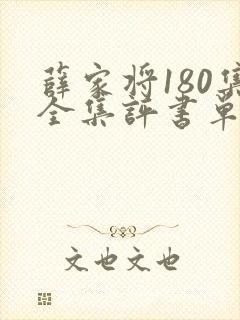 薛家将180集
全集評書單
文也文也